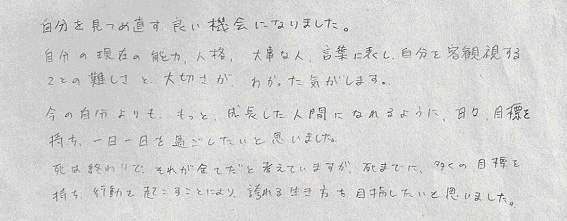 自分を見つめ直す良い機会になりました。
自分の現在の能力、人格、大事な人、言葉に表し、自分を客観視する
ことの難しさと、大切さが、わかった気がします。
今の自分よりも、もっと、成長した人間になれるように、日々、目標を
持ち、一日一日を過ごしたいと思いました。
死は終わりで、それが全てだと考えていますが、死までに、多くの目標を
持ち、行動を起こすことにより、誇れる生き方を目指したいと思いました。